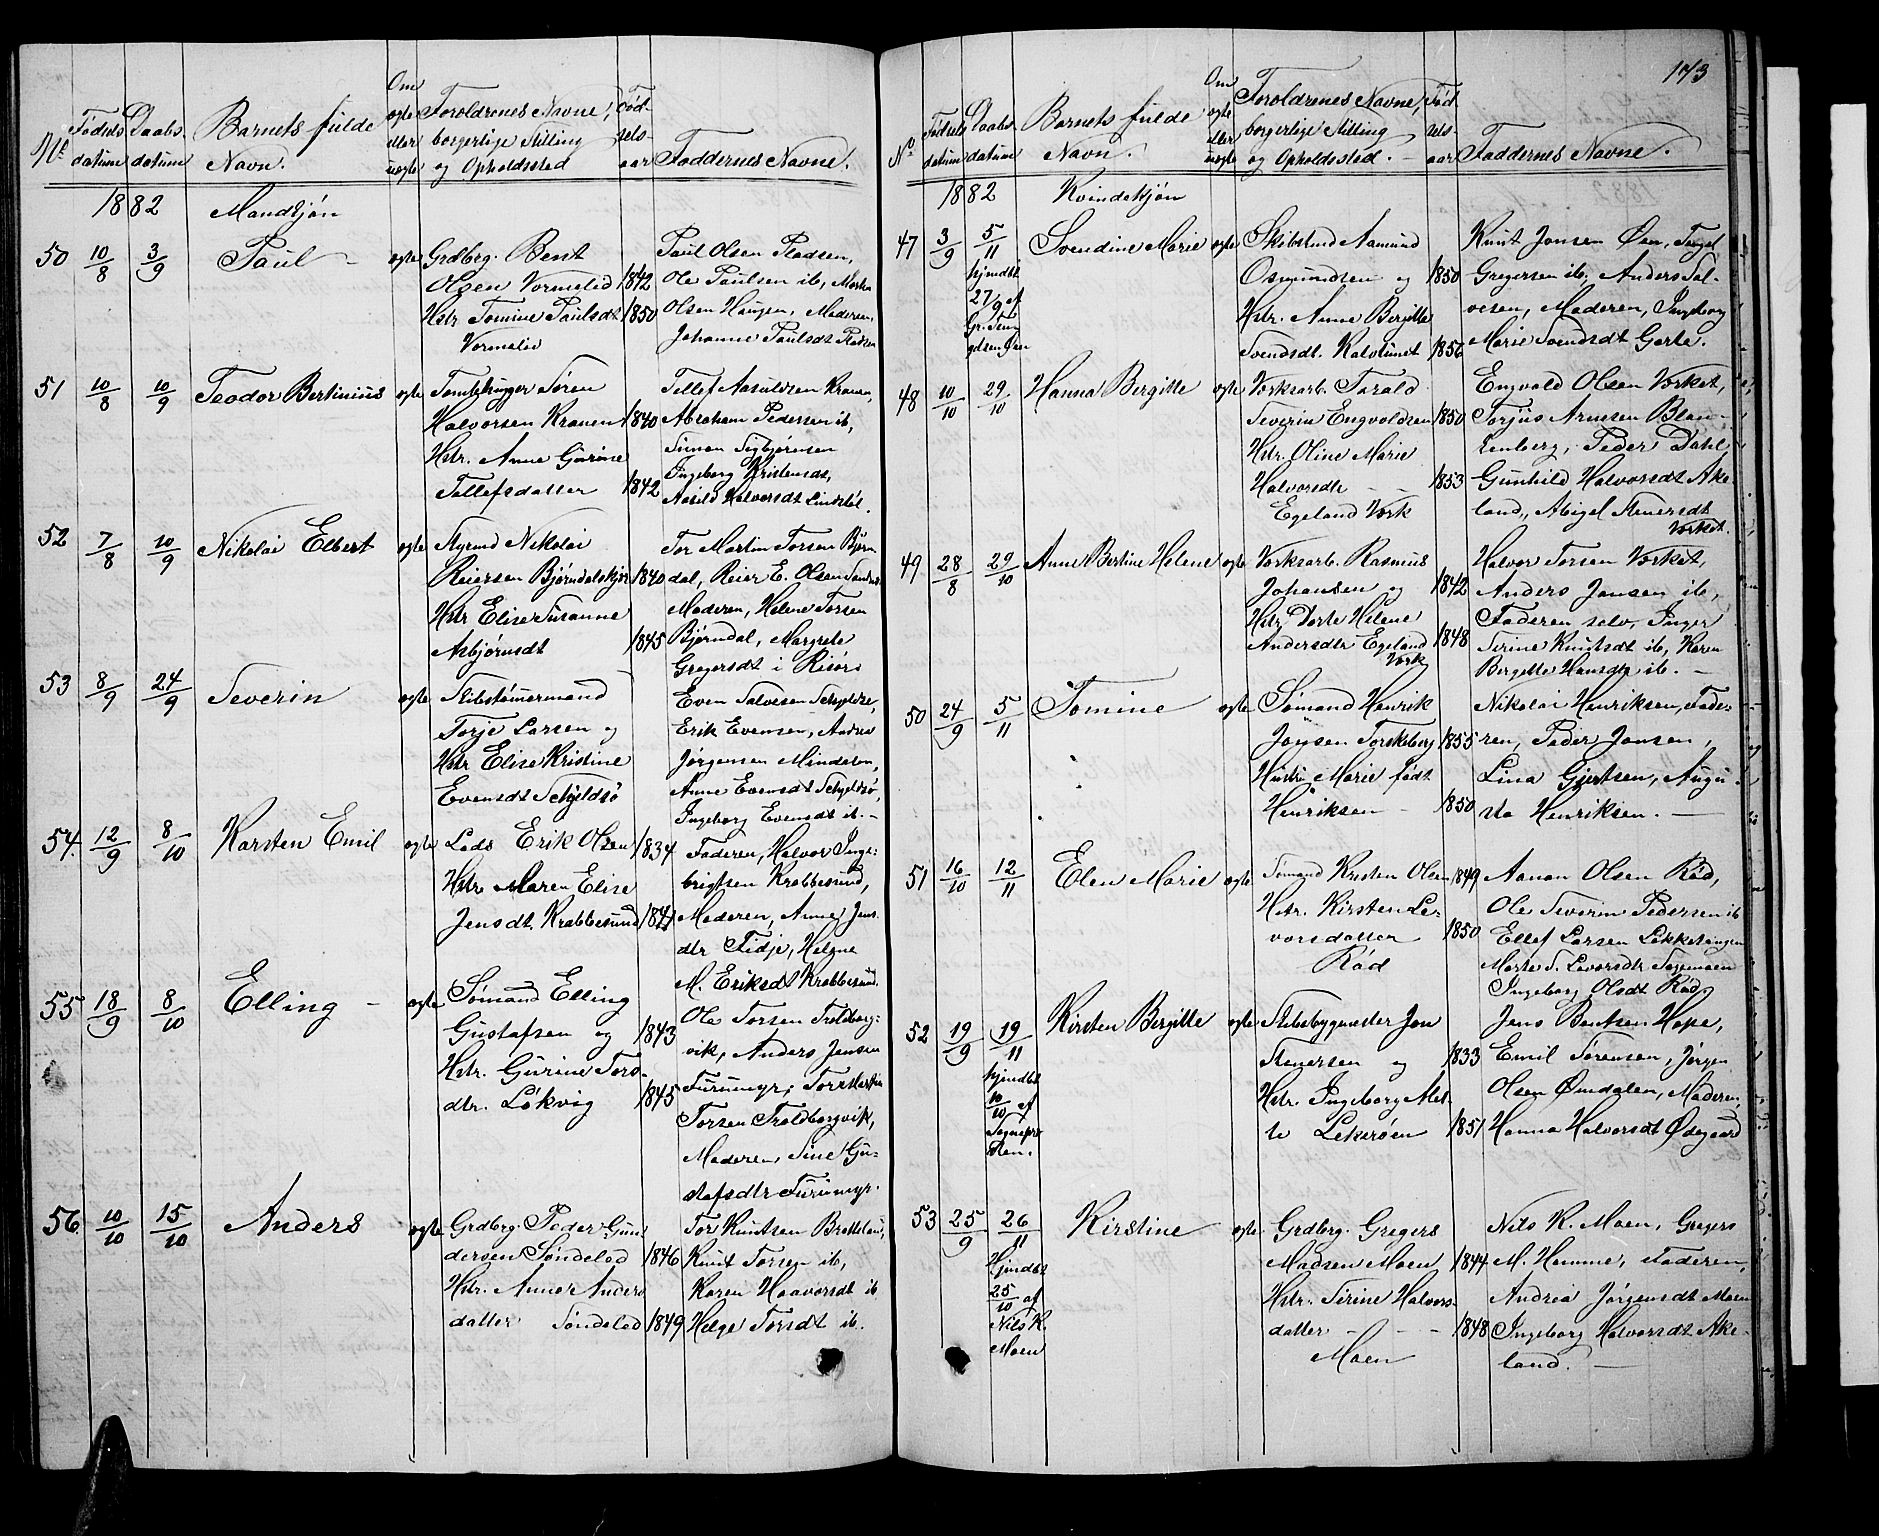 173
No
Fødsels datum
Daabs datum
Barnets fulde Navn.
Om ægte eller uægte
Forældrenes Navne, borgerlige Stilling og Opholdssted
Fødsels aar
Faddernes Navne.
1882 Mandkjøn
50 10/8 3/9 Paul - ægte
Grdbrg. Bent
Olsen Vormelid 1842
Hstr. Tomine Paulsdt 1850
Vormelid
Paul Olsen Pladsen,
Ole Paulsen ib,
Olsen Haugen, Moderen,
Johanne Paulsdt Pladsen
51 10/8 10/9 Teodor Bertinius ægte
Tømthugger Søren
Halvorsen Kranen 1840
Hstr. Anne Gurine
Tallefsdatter 1842
Tellef Aasuldsen Kranen,
Abraham Pedersen ib,
Simon Sigbjørnsen
Ingeborg Kristensdt,
Aasild Halvorsdt Lindstøl.
52 7/8 10/9 Nikolai Elbert ægte
Styrmd Nikolai
Reiersen Bjørndalskjær 1840
Hstr Elise Susanne
Asbjørnsdt 1845
Tor Martin Torsen Bjørn
dal, Reier E. Olsen
Moderen, Helene Torsen
Bjørndal, Margrete
Gregersdt i Risør
53 8/9 24/9 Severin ægte
Skibstømermand
Torje Larsen og
Hstr Elise Kristine
Evensdt Schjeldsø
Even Salvesen Schjeldsø,
Erik Evensen, Andrea
Jørgensen Mindalen,
Anne Evensdt Schjeldsø,
Ingeborg Evensdt ib. -
54. 12/9 8/10 Karsten Emil ægte
Lods Erik Olsen 1834
Hstr Maren Elise
Jensdt Krabbesund 1841
Faderen, Halvor Inge-
brigtsen Krabbesund,
Moderen, Anne Jens-
dtr Fidje, Helene
M. Eriksdt Krabbesund.
55 18/9 8/10 Elling - ægte
Sømand Elling
Gustafsen og 1843
Hstr. Gurine Tors-
dtr. Løkvig 1845
Ole Torsen Troldberg-
vik, Anders Jensen
Furumyr,
Torsen Troldbergvik,
Moderen, Sine Gu-
stafsdtr Furumyr.
56. 10/10 15/10 Anders ægte
Grdbrg. Peder Gun
dersen Søndeled 1846
Hstr. Anne Anders
datter Søndeled 1849
Tor Knutsen Brattland,
Knut Torsen ib,
Karen Haavorsdt ib
Helge Torsdt ib.
No
Fødsels datum
Daabs datum
Barnets fulde Navn.
Om ægte eller uægte
Forældrenes Navne, borgerlige Stilling og Opholdssted. -
Fødsels aar
Faddernes Navne.
1882 Kvindekjøn
47 3/9 5/11 Svendine Marie ægte
hjmdbt
27/9 af
Skibstmd Aamund
Osmundsen og 1850
Hstr. Anne Bergitte
Svendsdt. Kalstunet 1856
Knut Jonsen Øen,
Gregersen ib, Anders Sal-
vesen, Moderen, Ingeborg
Marie Svendsdt Garte.
48 10/10 29/10 Hanna Bergitte ægte
Værksarb. Tarald
Severin Engvoldsen 1850
Hstr. Oline Marie
Halvorsdtr - - 1853
Egeland Værk
Engvold Olsen Værket,
Torjus Arnesen Blan-
kenberg, Peder Dahl
Gunhild Halvorsdt Ake-
land, Abigel Stenersdt
Værket.
49 28/8 29/10 Anne Bertine Helene ægte
Værksarb. Rasmus
Johansen og 1842
Hstr Dorte Helene
Andersdtr Egeland 1848
Værk
Halvor Torsen Værket,
Anders Jensen ib,
Faderen selv, Inger
Sirine Knutsdt ib, Karen
Bergitte Hansdtr ib. -
50 24/9 5/11 Tomine ægte
Sømand Henrik
Jonsen Torskeberg 1855
Hustru Marie født
Henriksen - 1850
Nikolai Henriksen, Fade-
ren, Peder Jonsen,
Lina Gjertsen, Augu-
sta Henriksen. -
51 16/10 12/11 Elen Marie ægte
Sømand Kristen Olsen 1849
Hstr. Kirsten Le-
vorsdatter 1850
Rød
Aanon Olsen Rød,
Ole Severin Pedersen ib
Ellef Larsen Løkketangen
Marte S. Levorsdtr
Ingeborg Olsdt Rød
52 19/9 19/11 Kirsten Bergitte ægte
hjmdbt
10/10 af
Sognepræ
sten.
Skibsbygmester Jon
Stenersen og 1833
Hstr. Ingeborg Met-
te Lekerøen 1851
Jens Bentsen Hope,
Emil Sørensen, Jørgen
Olsen Omdalen, Moderen,
Hanna Halvorsdt Ødegaard
53 25/9 26/11 Kirstine ægte
Hjmdbt
25/10 af
Nils K.
Moen
Grdbrg. Gregers
Madsen Moen 1844
Hstr. Sirine Halvors-
datter - - - 1848
Moen
Nils K. Moen, Gregers
M. Hemme, Faderen,
Andrea Jørgensdt Moen
Ingeborg Halvorsdt Ake-
land. -